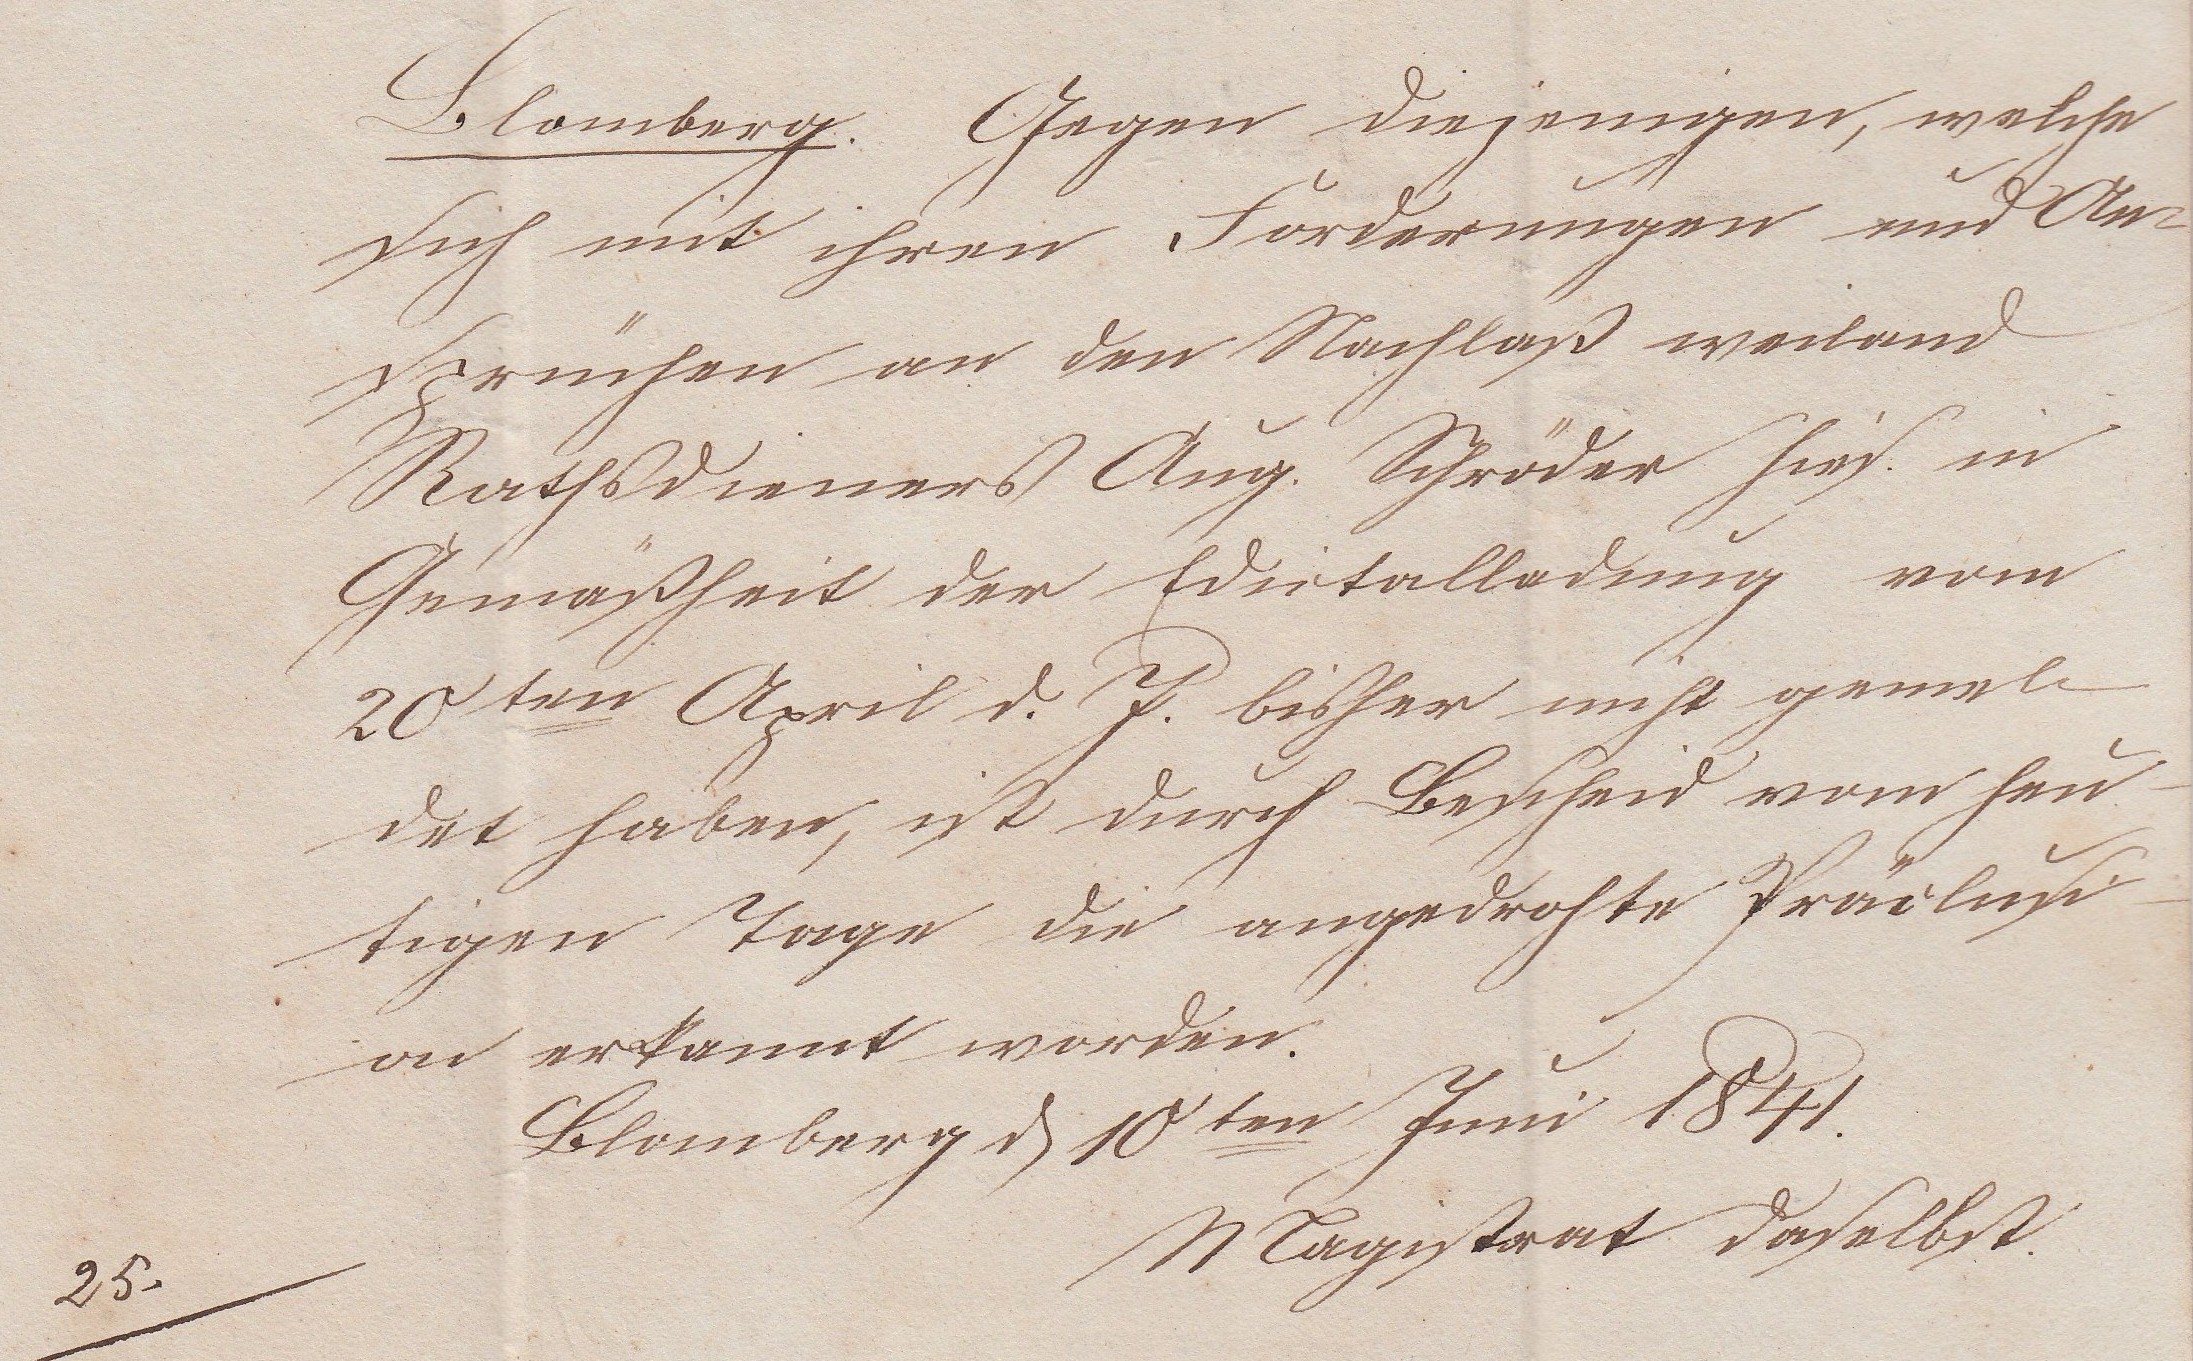 Blomberg. Gegen diejenigen, welche
sich mit ihren Forderungen und An-
sprüchen an den Nachlaß weiland
Rathsdieners Aug. Schröder hies. in
Gemäßheit der Edictalladung vom
20ten April d. J. bisher nicht gemel-
det haben, ist durch Bescheid vom heu-
tigen Tage die angedrohte Präclusi-
on erkannt worden.
Blomberg d 10ten Juni 1841.
Magistrat daselbst.
25.